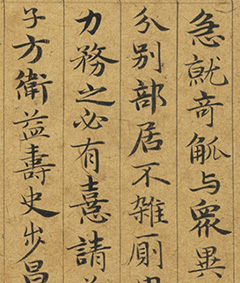 急就奇觚与衆異
分别部居不雜厠
力務之必有憙請
子方衛益壽史步昌